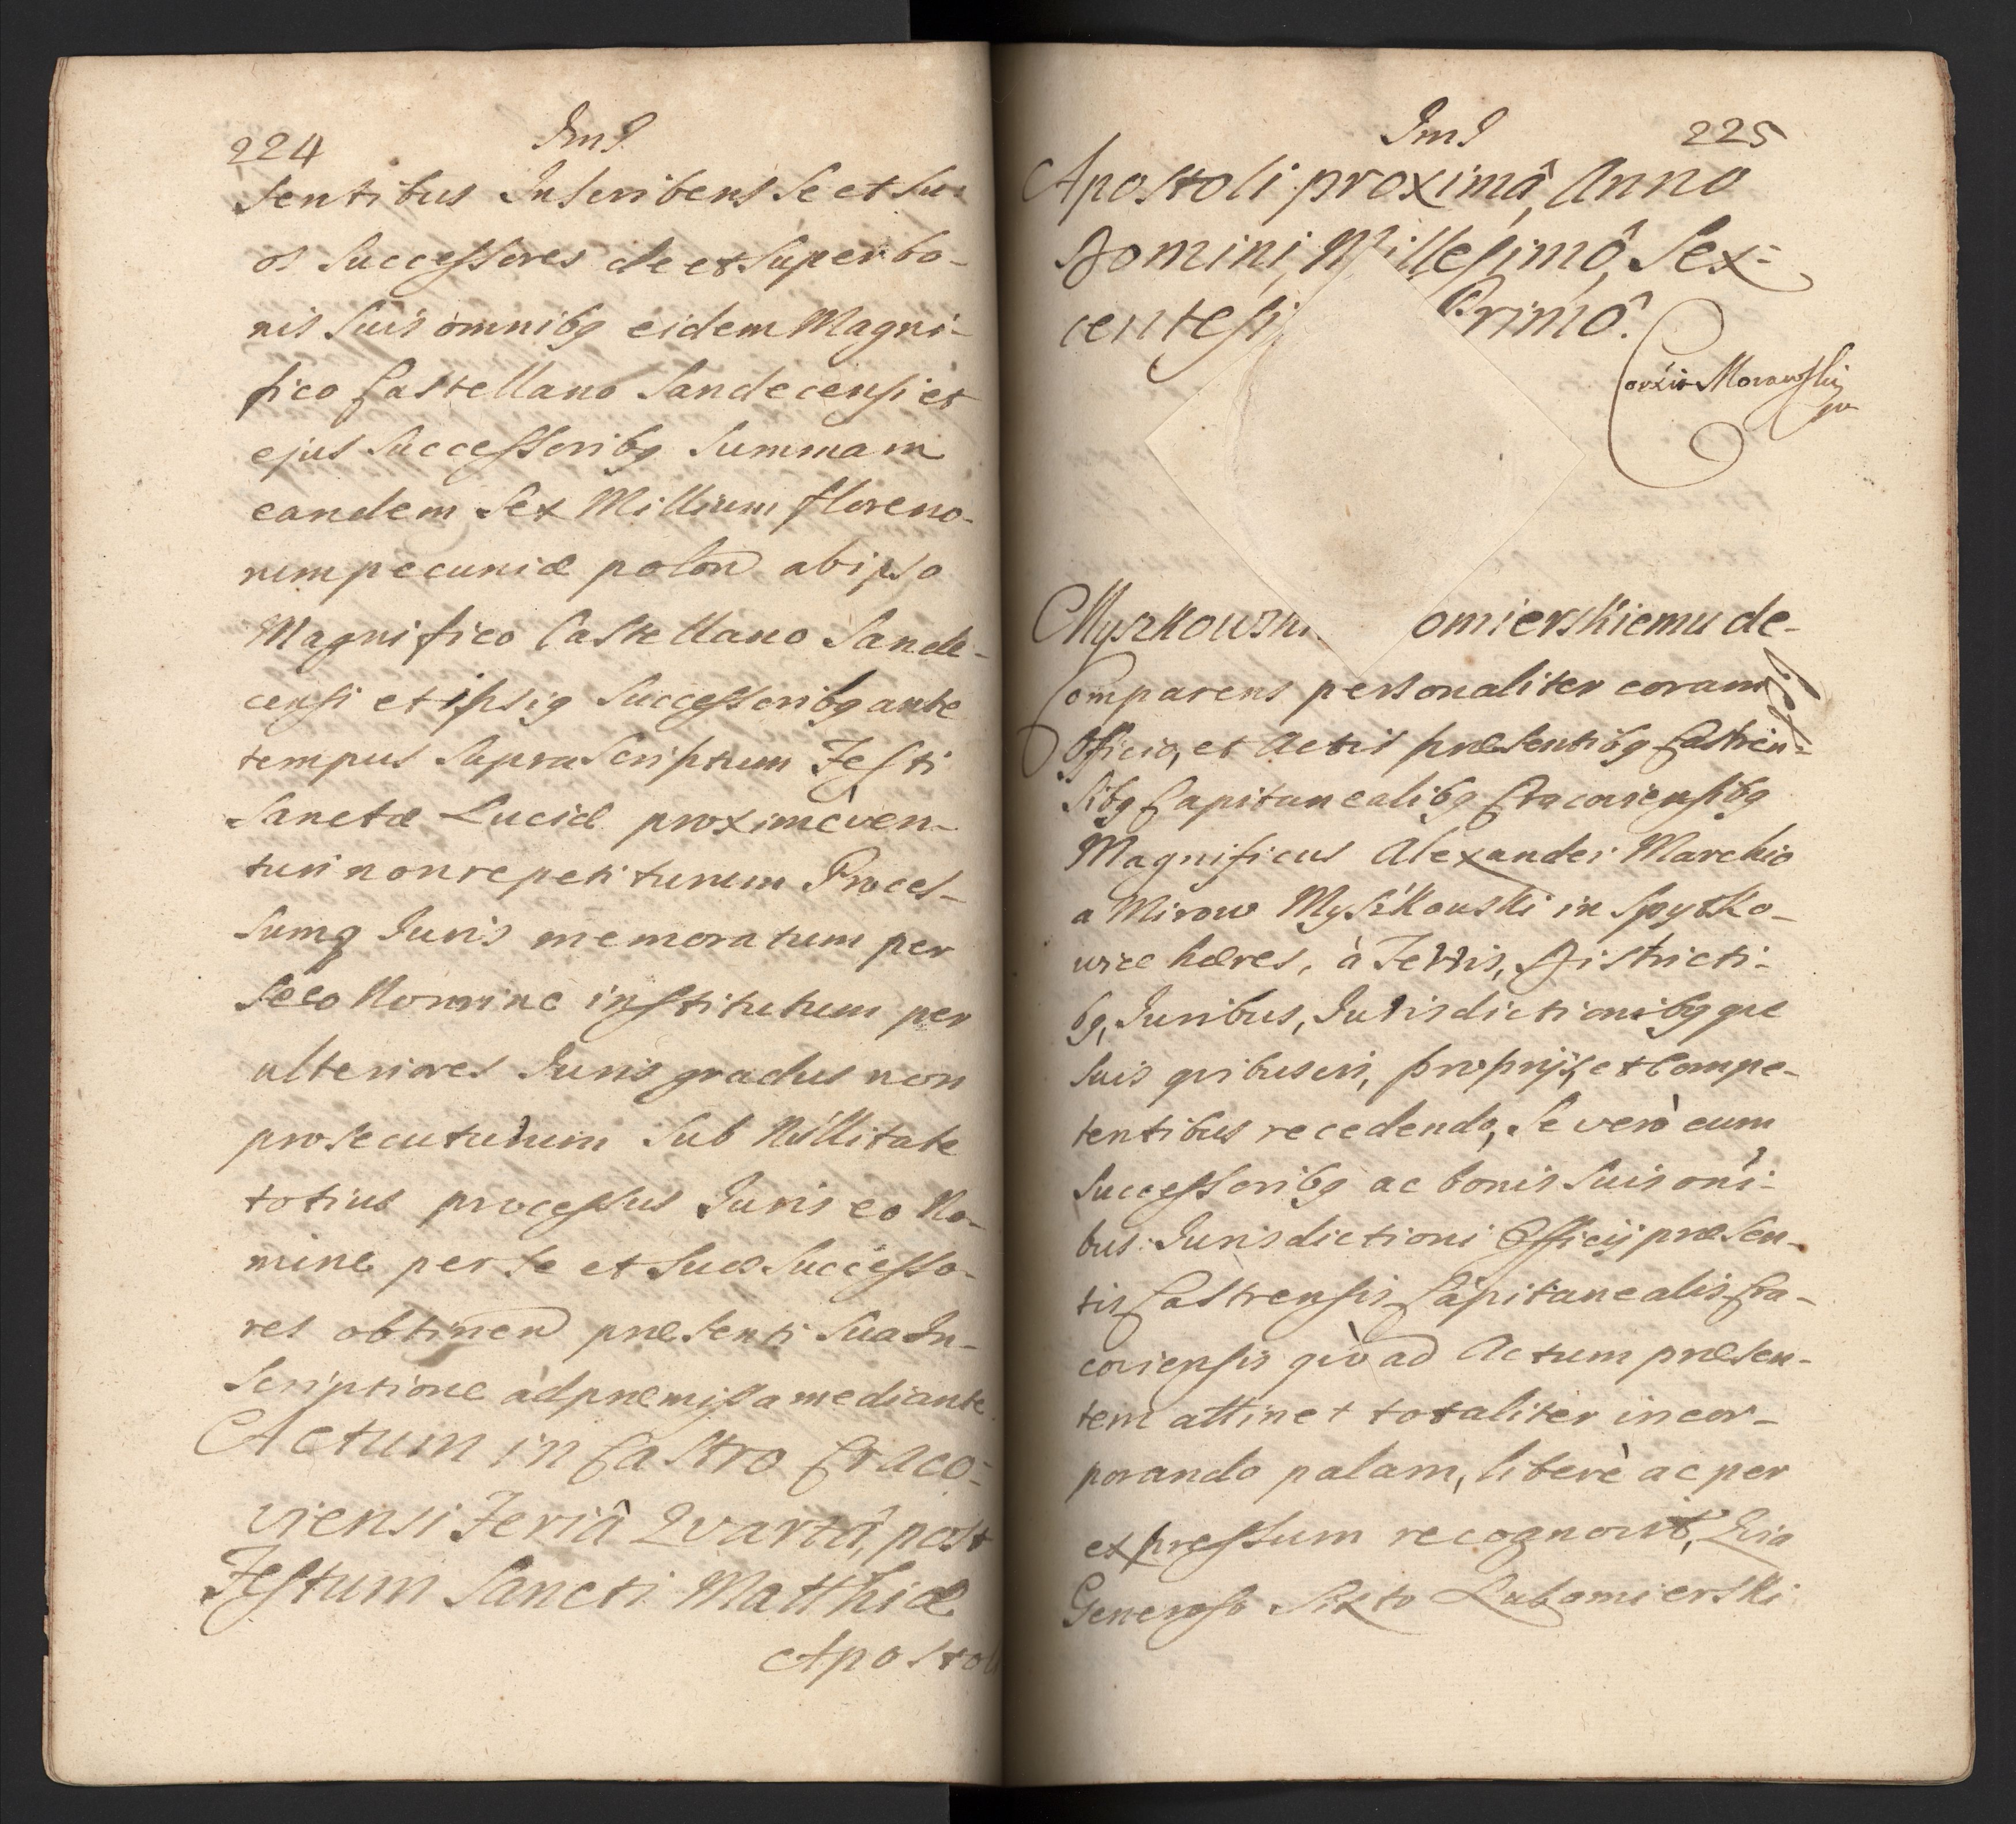 224 ImJ
sentibus Inscribens Se et Su-
os Successores de et Super bo-
nis Suis omnibg eidem Magni-
fico Castellano Sandecensi et
ejus Successoribg Summam
eandem Sex Millium floreno-
rum pecuniæ polon ab ipso
Magnifico Castellano Sande-
censi et ipsig Successoribg ante
tempus Suprascriptum Festi
Sanctæ Luciæ proximè ven-
turi non repetiturum Proces-
sumq Juris memoratum per
Se eo Nomine institutum per
ulteriores Juris gradus non
prosecuturum Sub Nullitate
totius processus Juris eo No-
mine per Se et Suos Successo-
res obtinen præsenti Sua In-
scriptione ad præmissa mediante
Actum in Castro Craco-
viensi Feriâ Qvartâ, post
Festum Sancti Matthiæ
Apostoli
ImJ 225
Apostoli proximâ, Anno
Domini, Millesimô, Sex-
centesi Primô.
Morawski
mp
Myszkowski omierskiemu de-
Comparens personaliter coram
Officio, et Actis præsentibg Castren-
sibg Capitanealibg Cracoviensibg
Magnificus Alexander Marchio
a Mirow Myszkowski in Spytko-
wice hæres, à Terris, Districti-
bg, Juribus, Jurisdictionibg que
Suis qvibusvis, proprijs, et Compe-
tentibus recedendo, Se verò cum
Successoribg ac bonis Suis oni-
bus Jurisdictioni Officij præsen-
tis Castrensis Capitanealis Cra-
coviensis qvò ad Actum præsen-
tem attinet totaliter incor-
porando palam, liberè ac per
expressum recognovit, Qvia
Generoso Sixto Lubomierski